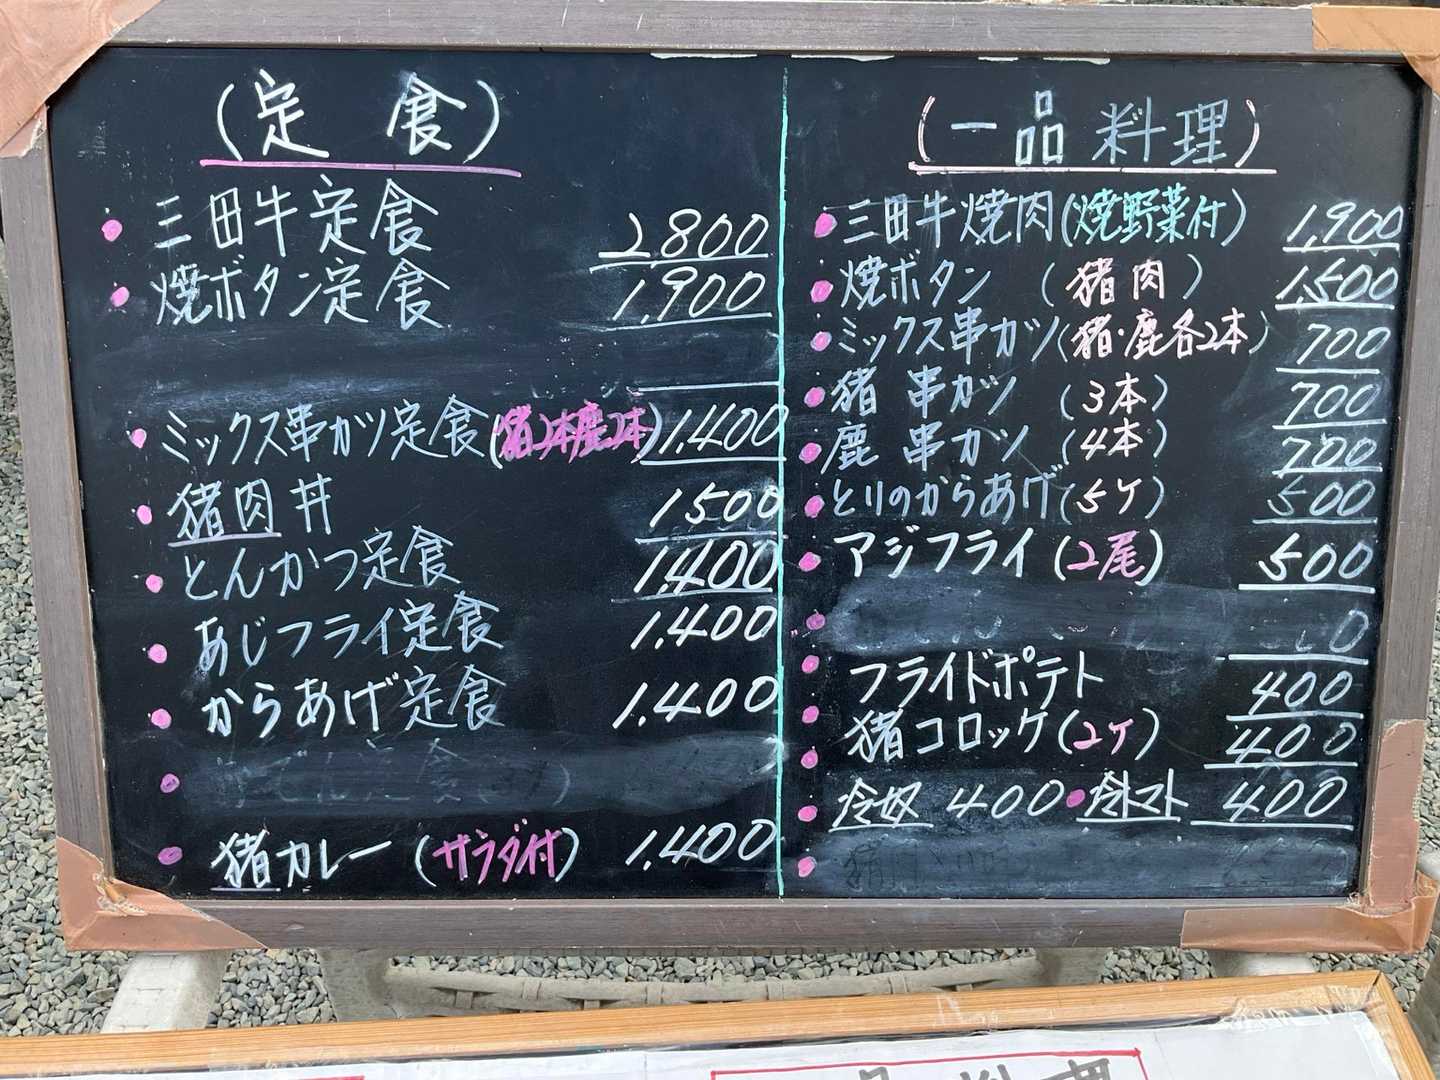 (定食)
三田牛定食 2800
焼ボタン定食 1,900
ミックス串カツ定食(猪2本鹿2本) 1,400
猪肉丼 1500
とんかつ定食 1,400
あじフライ定食 1,400
からあげ定食 1,400
猪カレー (サラダ付) 1,400
(一品料理)
三田牛焼肉(焼野菜付) 1,900
焼ボタン (猪肉) 1,500
ミックス串カツ(猪・鹿各2本) 700
猪 串カツ (3本) 700
鹿 串カツ (4本) 700
とりのからあげ(5ケ) 500
アジフライ (2尾) 500
フライドポテト 400
猪コロッケ(2ケ) 400
冷奴 400 冷トマト 400